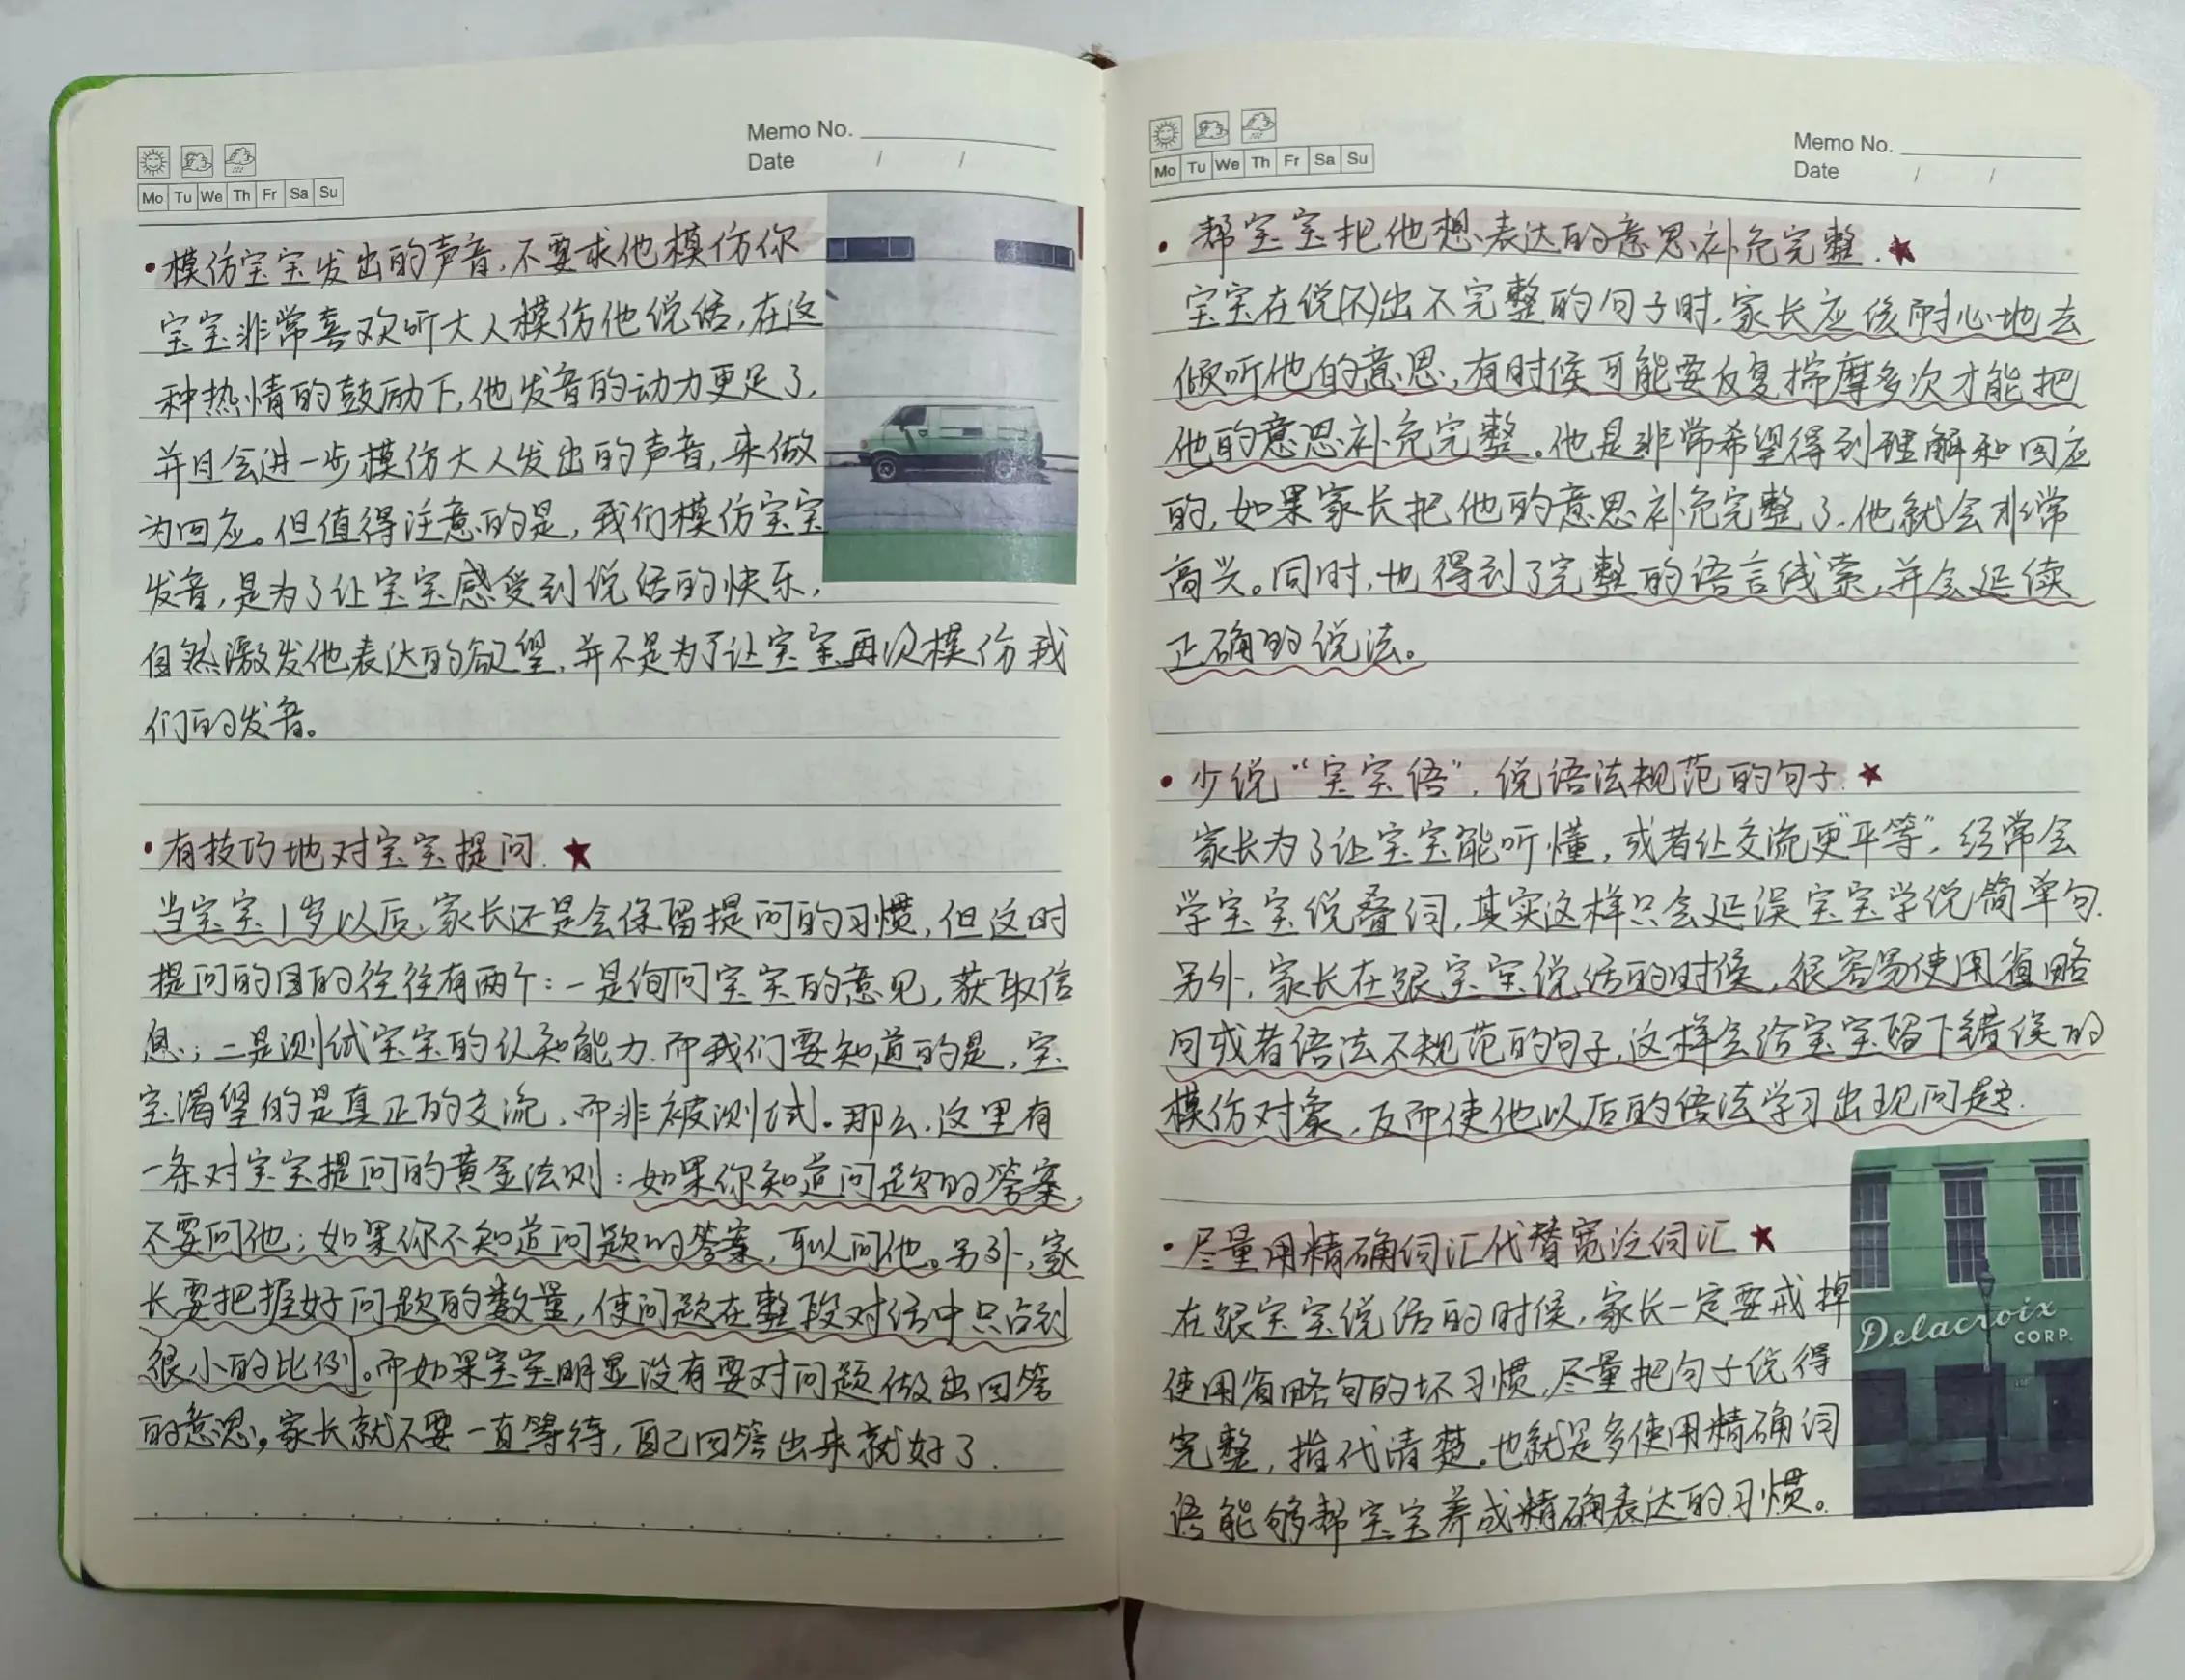 Memo No.
Date / /
Mo Tu We Th Fr Sa Su
• 模仿宝宝发出的声音，不要求他模仿你
宝宝非常喜欢听大人模仿他说话，在这
种热情的鼓励下，他发音的动力更足了，
并且会进一步模仿大人发出的声音，来做
为回应。但值得注意的是，我们模仿宝宝
发音，是为了让宝宝感受到说话的快乐，
自然激发他表达的欲望，并不是为了让宝宝再次模仿我
们的发音。
• 有技巧地对宝宝提问. ★
当宝宝1岁以后，家长还是会保留提问的习惯，但这时
提问的目的往往有两个：一是询问宝宝的意见，获取信
息；二是测试宝宝的认知能力.而我们要知道的是，宝
宝渴望的是真正的交流，而非被测试。那么，这里有
一条对宝宝提问的黄金法则：如果你知道问题的答案，
不要问他；如果你不知道问题的答案，可以问他。另外，家
长要把握好问题的数量，使问题在整段对话中只占到
很小的比例。而如果宝宝明显没有要对问题做出回答
的意思，家长就不要一直等待，自己回答出来就好了.
Memo No.
Date / /
Mo Tu We Th Fr Sa Su
• 帮宝宝把他想表达的意思补充完整. ★
宝宝在说(不)出不完整的句子时，家长应该耐心地去
倾听他的意思，有时候可能要反复揣摩多次才能把
他的意思补充完整。他是非常希望得到理解和回应
的，如果家长把他的意思补充完整了，他就会非常
高兴。同时，也得到了完整的语言线索，并会延续
正确的说法。
• 少说“宝宝语”，说语法规范的句子 ★
家长为了让宝宝能听懂，或者让交流更“平等”，经常会
学宝宝说叠词，其实这样只会延误宝宝学说简单句.
另外，家长在跟宝宝说话的时候，很容易使用省略
句或者语法不规范的句子，这样会给宝宝留下错误的
模仿对象，反而使他以后的语法学习出现问题.
• 尽量用精确词汇代替宽泛词汇 ★
在跟宝宝说话的时候，家长一定要戒掉
使用省略句的坏习惯，尽量把句子说得
完整，指代清楚。也就是多使用精确词
语能够帮宝宝养成精确表达的习惯。
Delacroix
CORP.